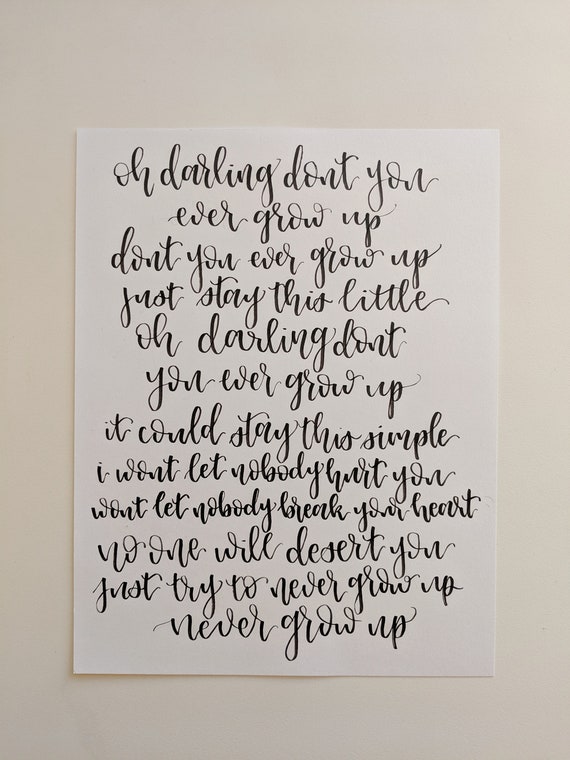 oh darling dont you
ever grow up
dont you ever grow up
just stay this little
oh darling dont
you ever grow up
it could stay this simple
i wont let nobody hurt you
wont let nobody break your heart
no one will desert you
just try to never grow up
never grow up